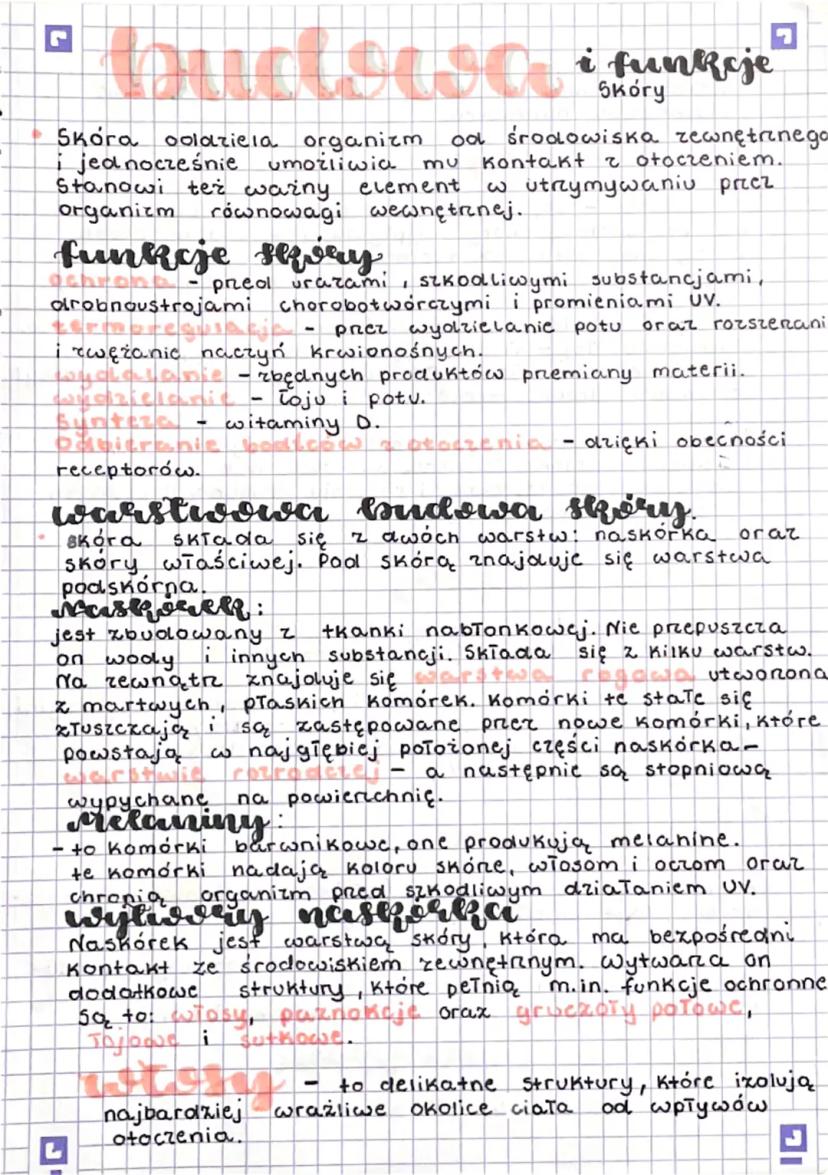 budowa i funkcje
skóry
Skóra oddziela organizm od środowiska zewnętrznego
i jednocześnie umożliwia mu kontakt z otoczeniem.
Stanowi też ważny element w utrzymywaniu przez
organizm równowagi wewnętrznej.
funkcje skóry
ochrona - przed urazami, szkodliwymi substancjami,
drobnoustrojami chorobotwórczymi i promieniami UV.
termoregulacja - przez wydzielanie potu oraz rozszerzani
i zwężanie naczyń krwionośnych.
wydalanie - zbędnych produktów przemiany materii.
wydzielanie - łoju i potu.
synteza - witaminy D.
Odbieranie bodźców z otoczenia - dzięki obecności
receptorów.
warstwowa budowa skóry.
skóra składa się z dwóch warstw: naskórka oraz
skóry właściwej. Pod skórą znajduje się warstwa
podskórna.
Naskórek:
jest zbudowany z tkanki nabłonkowej. Nie przepuszcza
on wody i innych substancji. Składa się z kilku warstw.
Na zewnątrz znajduje się warstwa rogowa utworzona
z martwych, płaskich komórek. Komórki te stale się
złuszczają i są zastępowane przez nowe komórki, które
powstają w najgłębiej położonej części naskórka-
warstwie rozrodczej - a następnie są stopniową
wypychane na powierzchnię.
Melaniny:
- to komórki barwnikowe, one produkują melanine.
te komórki nadają koloru skórze, włosom i oczom oraz
chronią organizm przed szkodliwym działaniem UV.
wytwory naskórka
Naskórek jest warstwą skóry, która ma bezpośredni
kontakt ze środowiskiem zewnętrznym. Wytwarza on
dodatkowe struktury, które pełnią m.in. funkcje ochronne
Są to: włosy, paznokcje oraz gruczoły potowe,
łojowe i sutkowe.
włosy - to delikatne struktury, które izolują
najbardziej wrażliwe okolice ciała od wpływów
otoczenia.